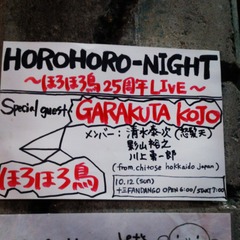 HOROHORO-NIGHT
〜ほろほろ鳥25周年LIVE〜
Special guest!
GARAKUTA KOJO
メンバー:清水泰次(怒髪天)
影山裕之
川上晋一郎
(from chitose hokkaido japan)
ほろほろ鳥
10.12(sun)
十三FANDANGO OPEN 6:00/START 7:00